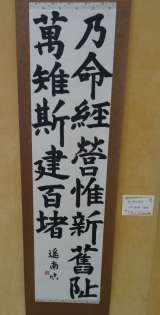 乃命經營惟新舊阯
萬雉斯建百堵